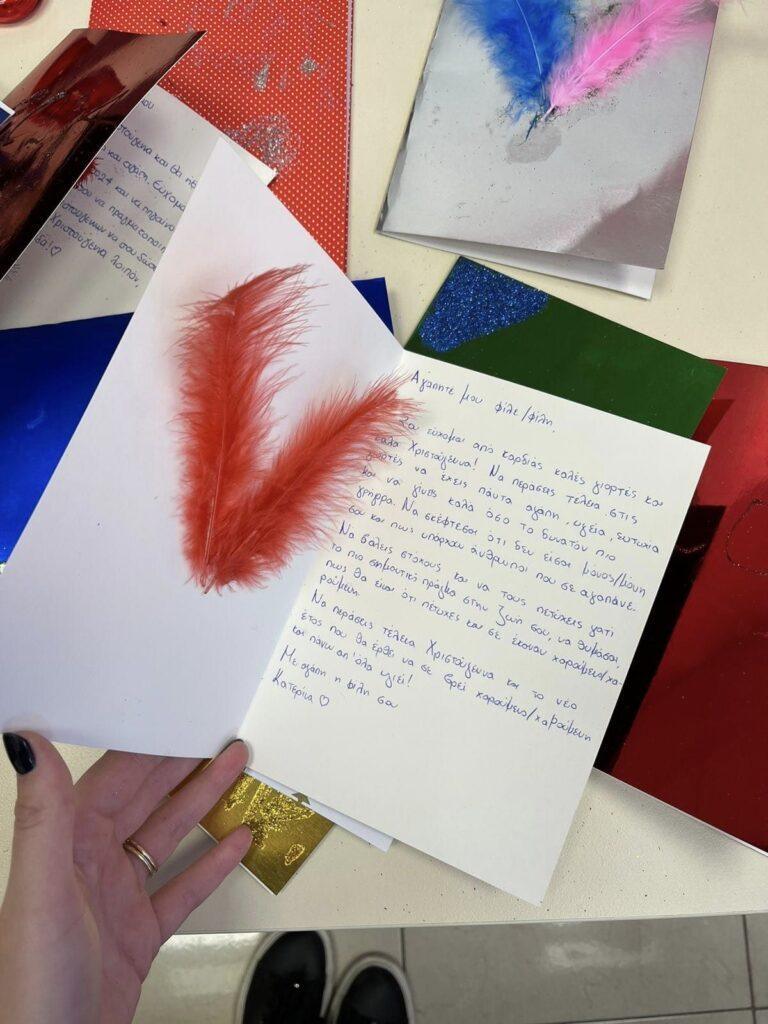 Αγαπητέ μου φίλε/φίλη,
Σου εύχομαι από καρδιάς καλές γιορτές και
καλά Χριστούγεννα! Να περάσεις τέλεια στις
γιορτές να έχεις πάντα αγάπη, υγεία, ευτυχία
και να γίνεις καλά όσο το δυνατόν πιο
γρήγορα. Να σκέφτεσαι ότι δεν είσαι μόνος/μόνη
σου και πως υπάρχουν άνθρωποι που σε αγαπάνε.
Να βάλεις στόχους και να τους πετύχεις γιατί
το πιο σημαντικό πράγμα στην ζωή σου, να θυμάσαι,
πως θα είναι ότι πέτυχες και σε έκαναν χαρούμενο/χα-
ρούμενη.
Να περάσεις τέλεια Χριστούγεννα και το νέο
έτος που θα έρθει να σε βρεί χαρούμενος/χαρούμενη
και πάνω απ'όλα υγιεί!
Με αγάπη η φίλη σου
Κατερίνα ♡
μου
Χριστούγεννα και θα ήθ
και αγάπη. Εύχομα
2024 και να πηγαίνο
σου να πραγματοποιη
Χριστουγέννων να σου δώσε
Χριστούγεννα λοιπόν,
♡